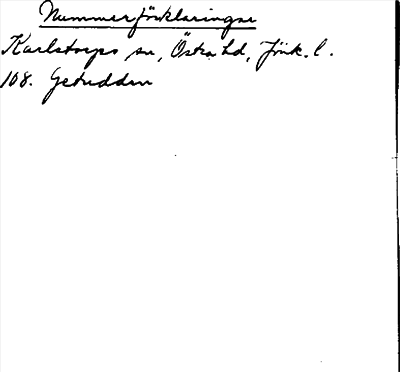 Nummerförklaringar
Karlstorps sn, Östra hd, Jönk. l.
108. Getudden